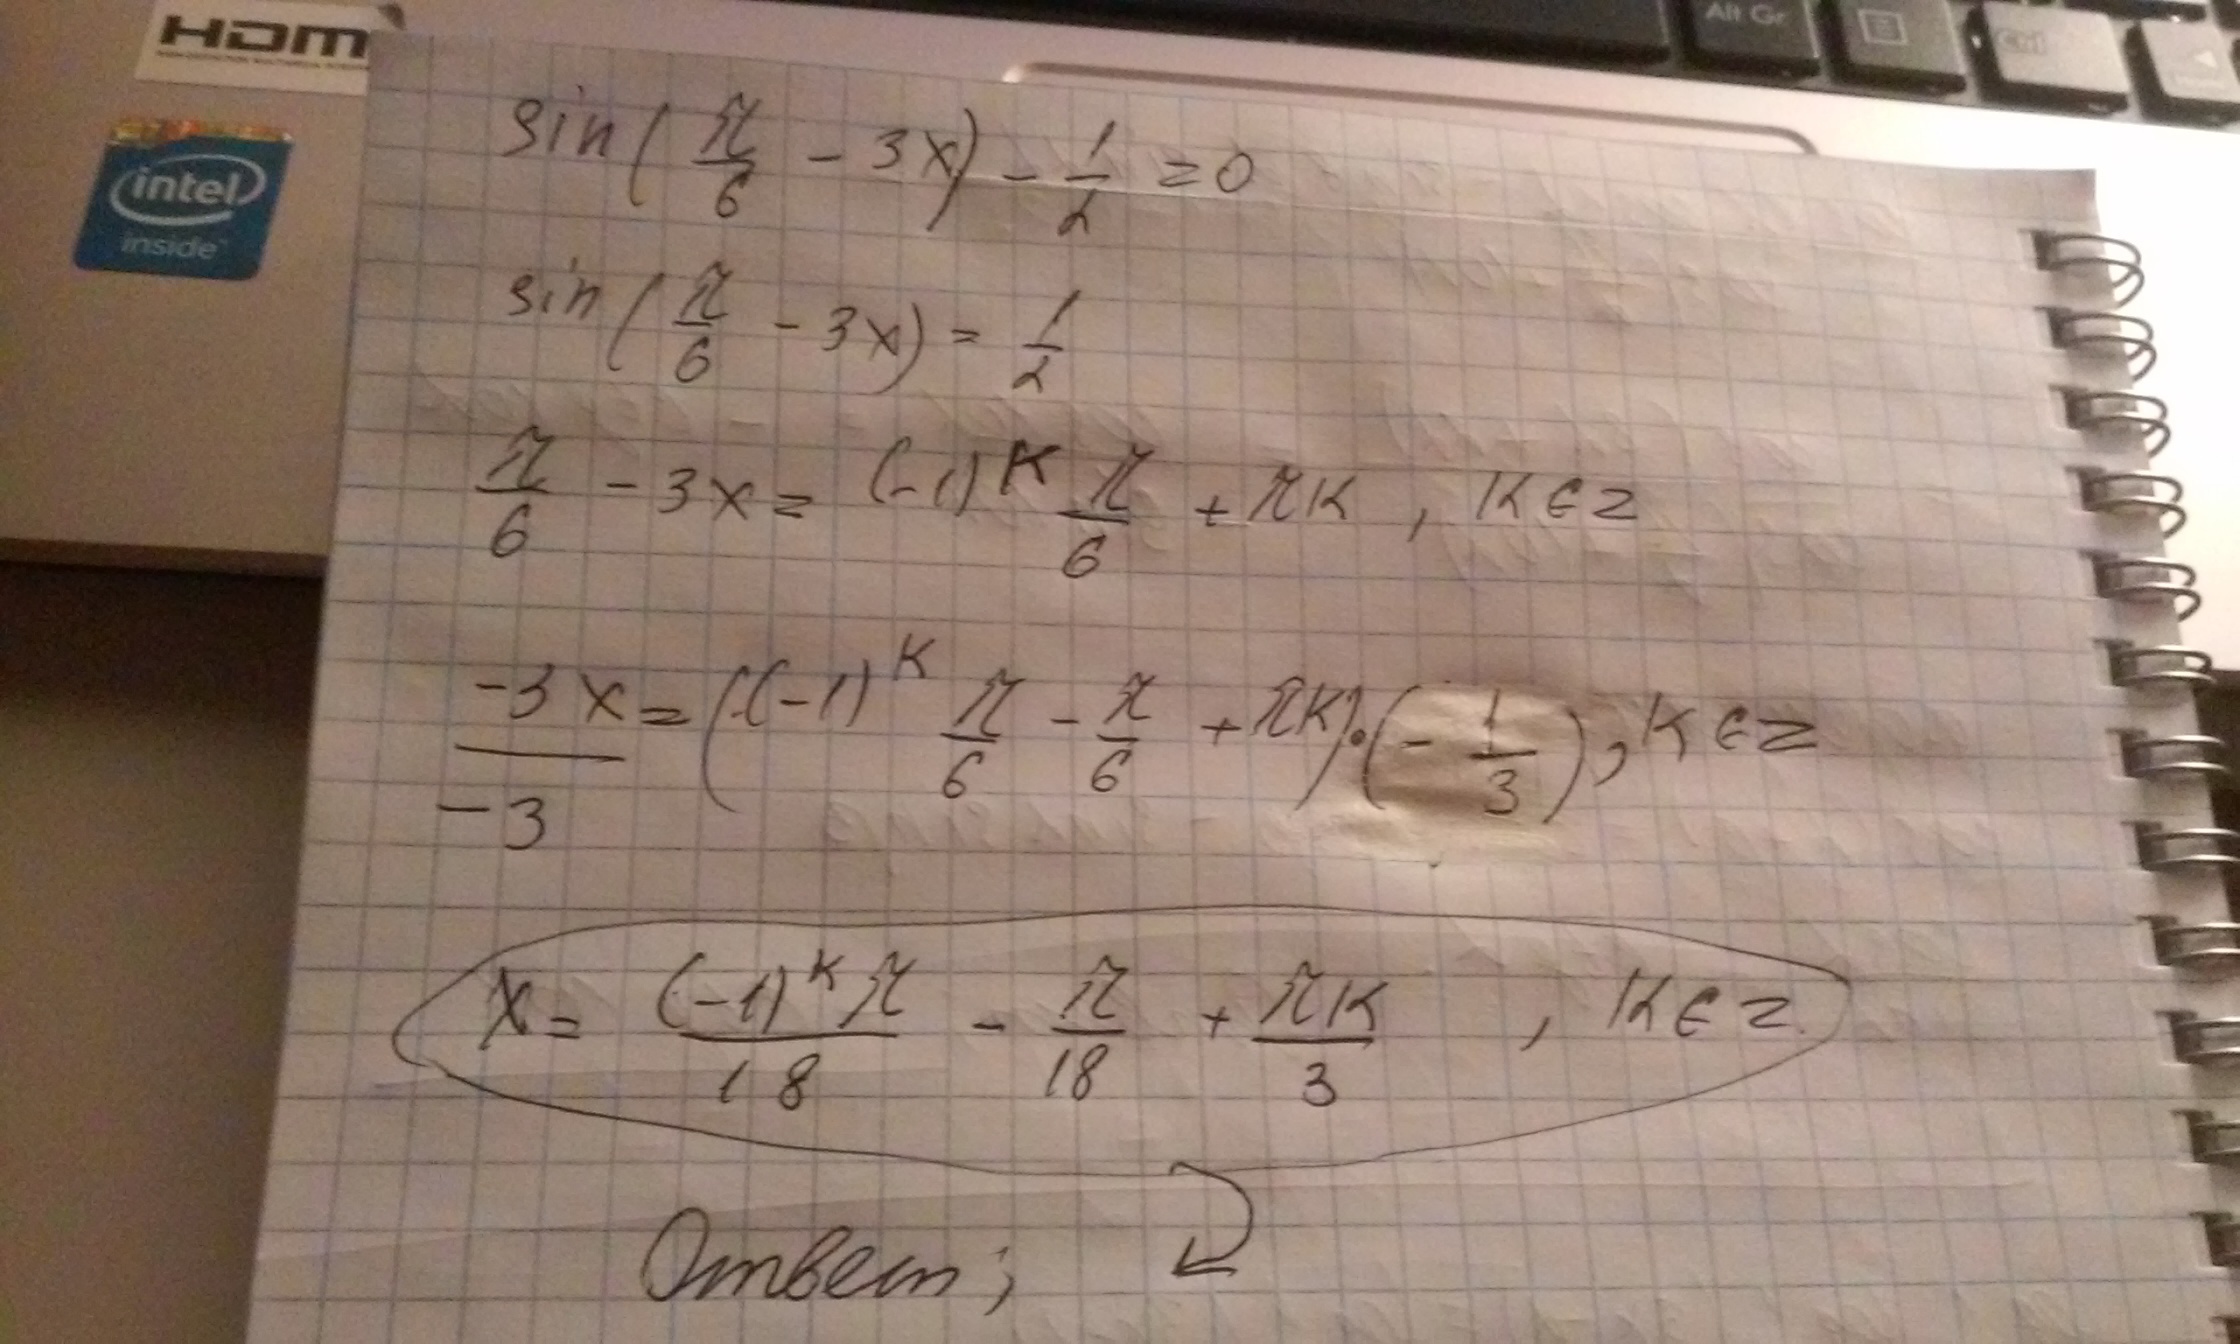 HDM
intel
inside
Alt Gr
Ctrl
sin(π/6 - 3x) - 1/2 = 0
sin(π/6 - 3x) = 1/2
π/6 - 3x = (-1)^k π/6 + πk , k ∈ z
-3x/-3 = ((-1)^k π/6 - π/6 + πk)·(-1/3), k ∈ z
x = (-1)^k π/18 - π/18 + πk/3 , k ∈ z
Ответ;